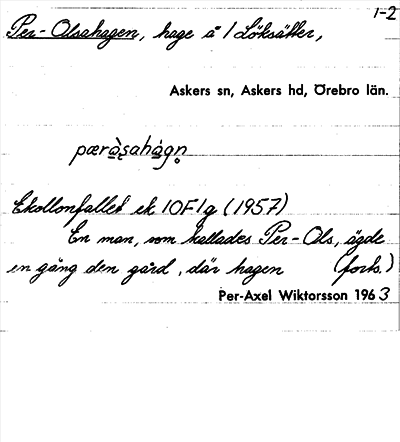 1-2
Per-Olsahagen, hage å 1 Löksätter,
Askers sn, Askers hd, Örebro län.
pæràṣahàgn̥
Ekollonfallet ek 10F1g (1957)
En man, som kallades Per-Ols, ägde
en gång den gård, där hagen (forts.)
Per-Axel Wiktorsson 1963